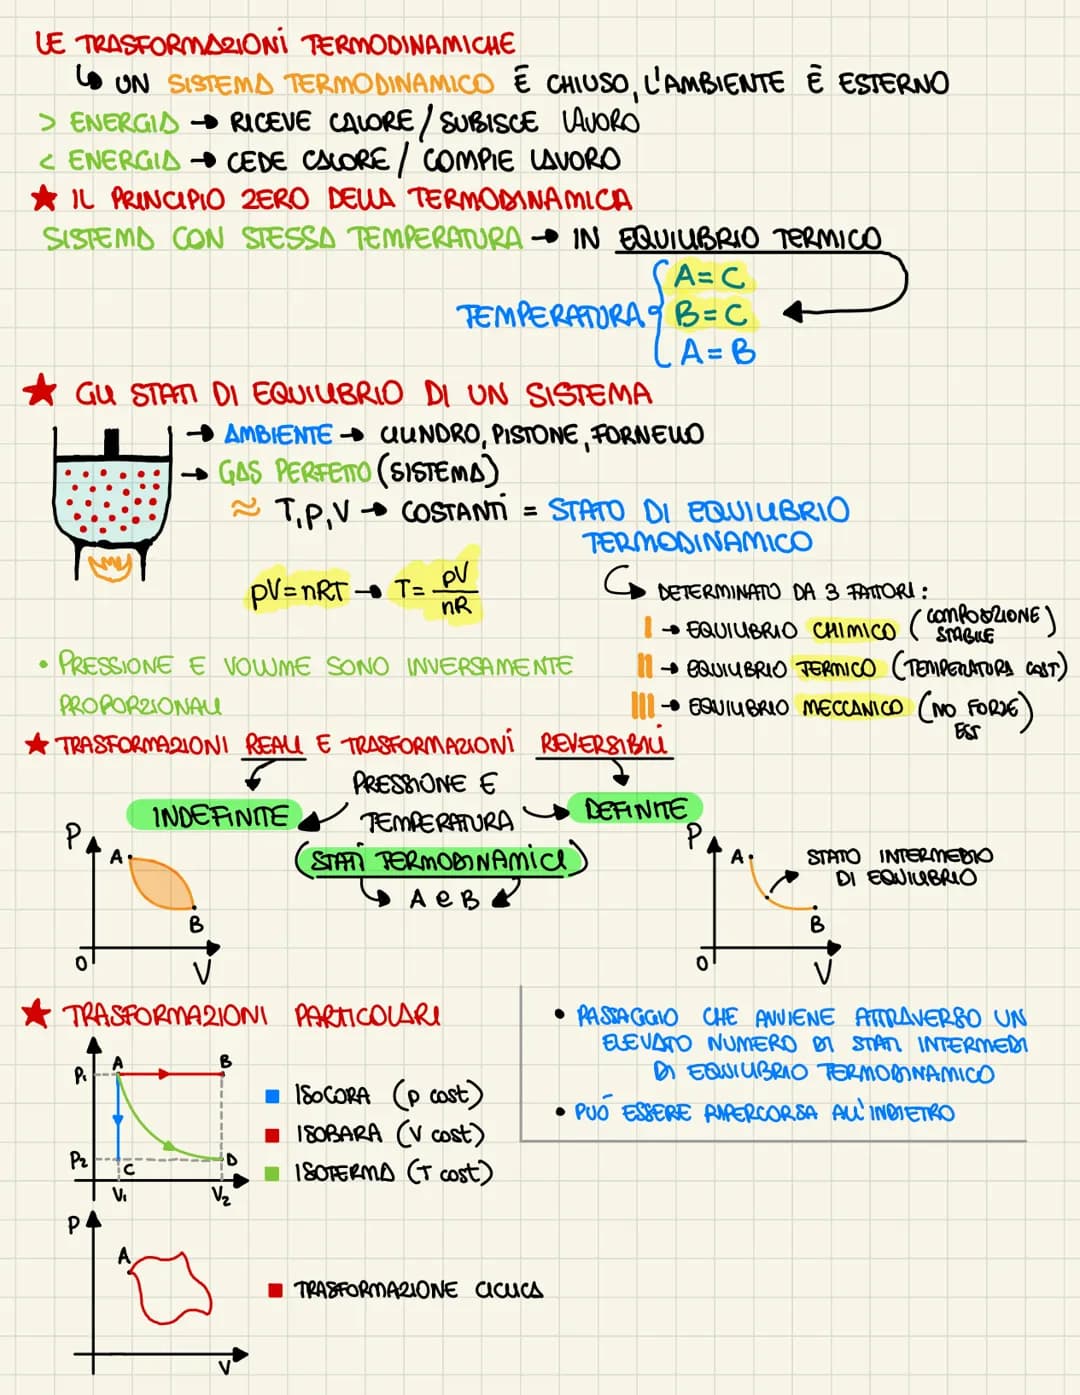 LE TRASFORMAZIONI TERMODINAMICHE
UN SISTEMA TERMODINAMICO È CHIUSO, L'AMBIENTE È ESTERNO
> ENERGIA → RICEVE CALORE / SUBISCE LAVORO
< ENERGIA → CEDE CALORE / COMPIE LAVORO
★ IL PRINCIPIO ZERO DELLA TERMODINAMICA
SISTEMA CON STESSA TEMPERATURA → IN EQUILIBRIO TERMICO
A = C
TEMPERATURA { B = C
A = B
★ GLI STATI DI EQUILIBRIO DI UN SISTEMA
→ AMBIENTE → CILINDRO, PISTONE, FORNELLO
→ GAS PERFETTO (SISTEMA)
≈ T, P, V → COSTANTI = STATO DI EQUILIBRIO
TERMODINAMICO
pV = nRT → T = pV / nR
DETERMINATO DA 3 FATTORI:
I → EQUILIBRIO CHIMICO (COMPOSIZIONE STABILE)
II → EQUILIBRIO TERMICO (TEMPERATURA COST)
III → EQUILIBRIO MECCANICO (NO FORZE EST)
• PRESSIONE E VOLUME SONO INVERSAMENTE
PROPORZIONALI
★ TRASFORMAZIONI REALI E TRASFORMAZIONI REVERSIBILI
PRESSIONE E
INDEFINITE TEMPERATURA DEFINITE
(STATI TERMODINAMICI)
A e B
P A B 0 V
P A B 0 V
STATO INTERMEDIO
DI EQUILIBRIO
★ TRASFORMAZIONI PARTICOLARI
• PASSAGGIO CHE AVVIENE ATTRAVERSO UN
ELEVATO NUMERO DI STATI INTERMEDI
DI EQUILIBRIO TERMODINAMICO
• PUÓ ESSERE RIPERCORSA ALL'INDIETRO
P₁ A B
P₂ C D
V₁ V₂
ISOCORA (p cost)
ISOBARA (V cost)
ISOTERMA (T cost)
P
A
V
TRASFORMAZIONE CICLICA